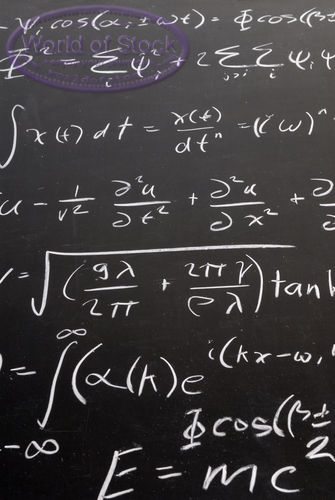 Ψᵢ cos(αᵢ ± ωt) = Φ cos(β±
World of Stock
Φ² = Σᵢ Ψᵢ² + 2 Σⱼ>ᵢ Σᵢ Ψᵢ Ψ
∫ x(t) dt = x(t)/dtⁿ = (iω)ⁿ
u - 1/v² ∂²u/∂t² + ∂²u/∂x² + ∂
= √(gλ/2π + 2πγ/ρλ) tanh
= ∫_-∞^∞ (α(k)e^i(kx-ω
Φ cos(β±
2
E = mc